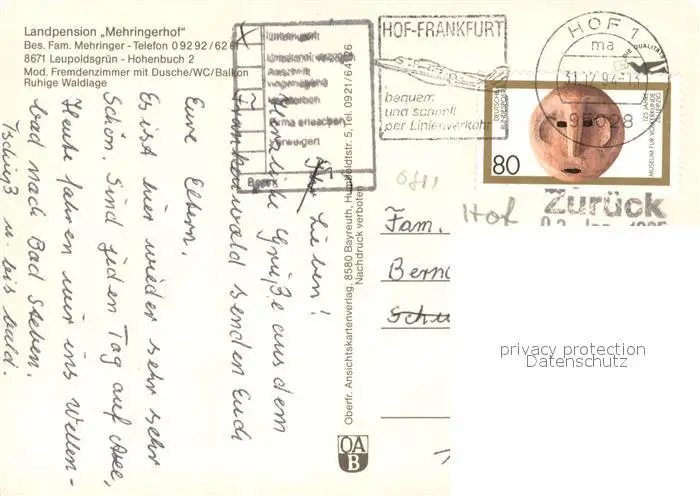 Landpension „Mehringerhof"
Bes. Fam. Mehringer - Telefon 0 92 92/62 61
8671 Leupoldsgrün - Hohenbuch 2
Mod. Fremdenzimmer mit Dusche/WC/Balkon
Ruhige Waldlage
Ihr Lieben!
Herzliche Grüße aus dem
Frankenwald senden Euch
Eure Eltern.
Es ist hier wieder sehr sehr
schön. Sind jeden Tag auf Axe,
Heute fahren wir ins Wellen-
bad nach Bad Steben.
Tschüß u. bis bald.
Oberfr. Ansichtskartenverlag, 8580 Bayreuth, Humboldtstr. 5, Tel. 0921/64
Nachdruck verboten
OA
B
Unbekannt
Unbekannt verzogen
verweigert
HOF-FRANKFURT
bequem
und schnell
per Linienverkehr
HOF 1
ma
95028
DEUTSCHE
BUNDESPOST
80
125 JAHRE
MUSEUM FÜR VÖLKERKUNDE
LEIPZIG
Zurück
Hof
Fam.
privacy protection
Datenschutz